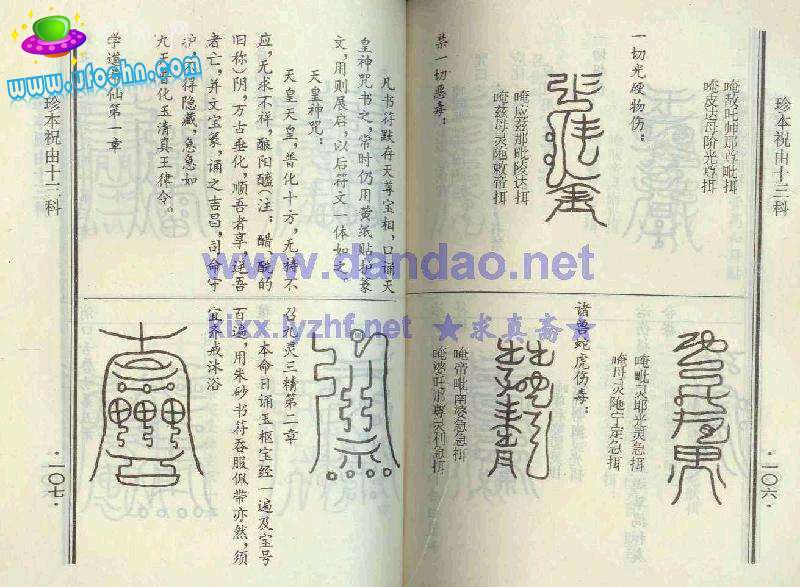 珍本祝由十三科
·一〇六·
唵敌吒师那尊毗揖
唵皮达母阶光尊揖
一切光硬物伤：
唵应兹那毗陵达揖
唵兹母灵陁敕帝揖
禁一切恶毒：
唵毗灵耶光灵急揖
唵母灵陁宁定急揖
诸兽蛇虎伤毒：
唵帝毗南婆急急揖
唵婆旺那尊灵利急揖
凡书符默存天尊宝相，口诵天
皇神咒书之，常时仍用黄纸贴护篆
文，用则展启，以后符文一体如之
天皇神咒：
天皇天皇，普化十方，无祷不
应，无求不祥，酿阳醯〈注：醋、酰的
旧称〉阴，万古垂化，顺吾者享，逆吾
者亡，并文宝篆，诵之吉昌，司命守
护，不得隐藏，急急如
九天普化玉清真王律令。
学道希仙第一章
召九灵三精第二章
本命日诵玉枢宝经一遍及宝号
百遍，用朱砂书符吞服佩带亦然，须
宜斋戒沐浴
珍本祝由十三科
·一〇七·
www.ufoshn.com
www.dandao.net
kjxx.lyzhf.net ★求真斋★